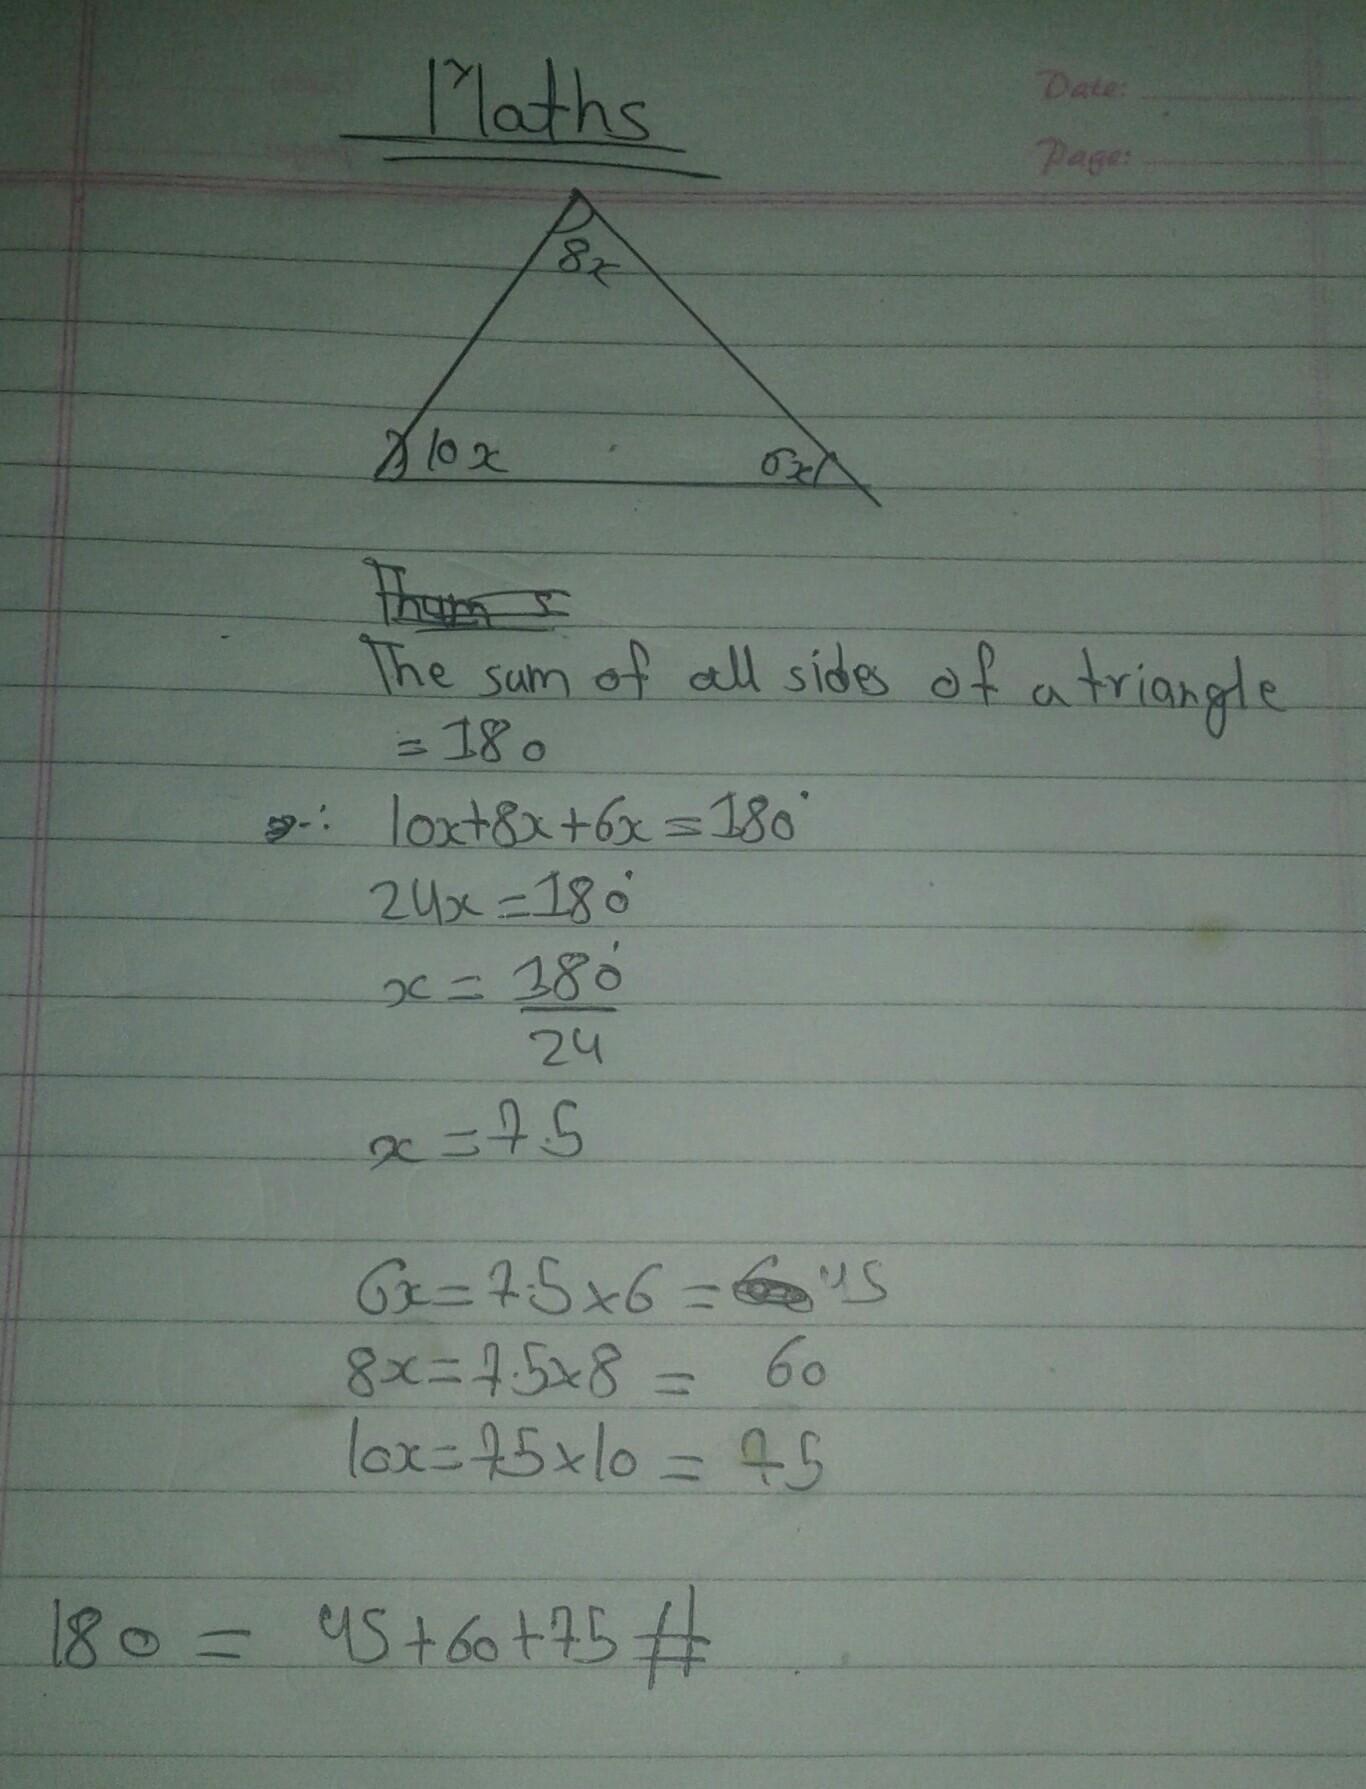 Maths
Date:
Page:
8x
10x
6x
The sum of all sides of a triangle
= 180
∴ 10x+8x+6x = 180°
24x = 180°
x = 180°
24
x = 7.5
6x = 7.5 x 6 = 45
8x = 7.5x8 = 60
10x = 7.5 x 10 = 75
180 = 45+60+75 #